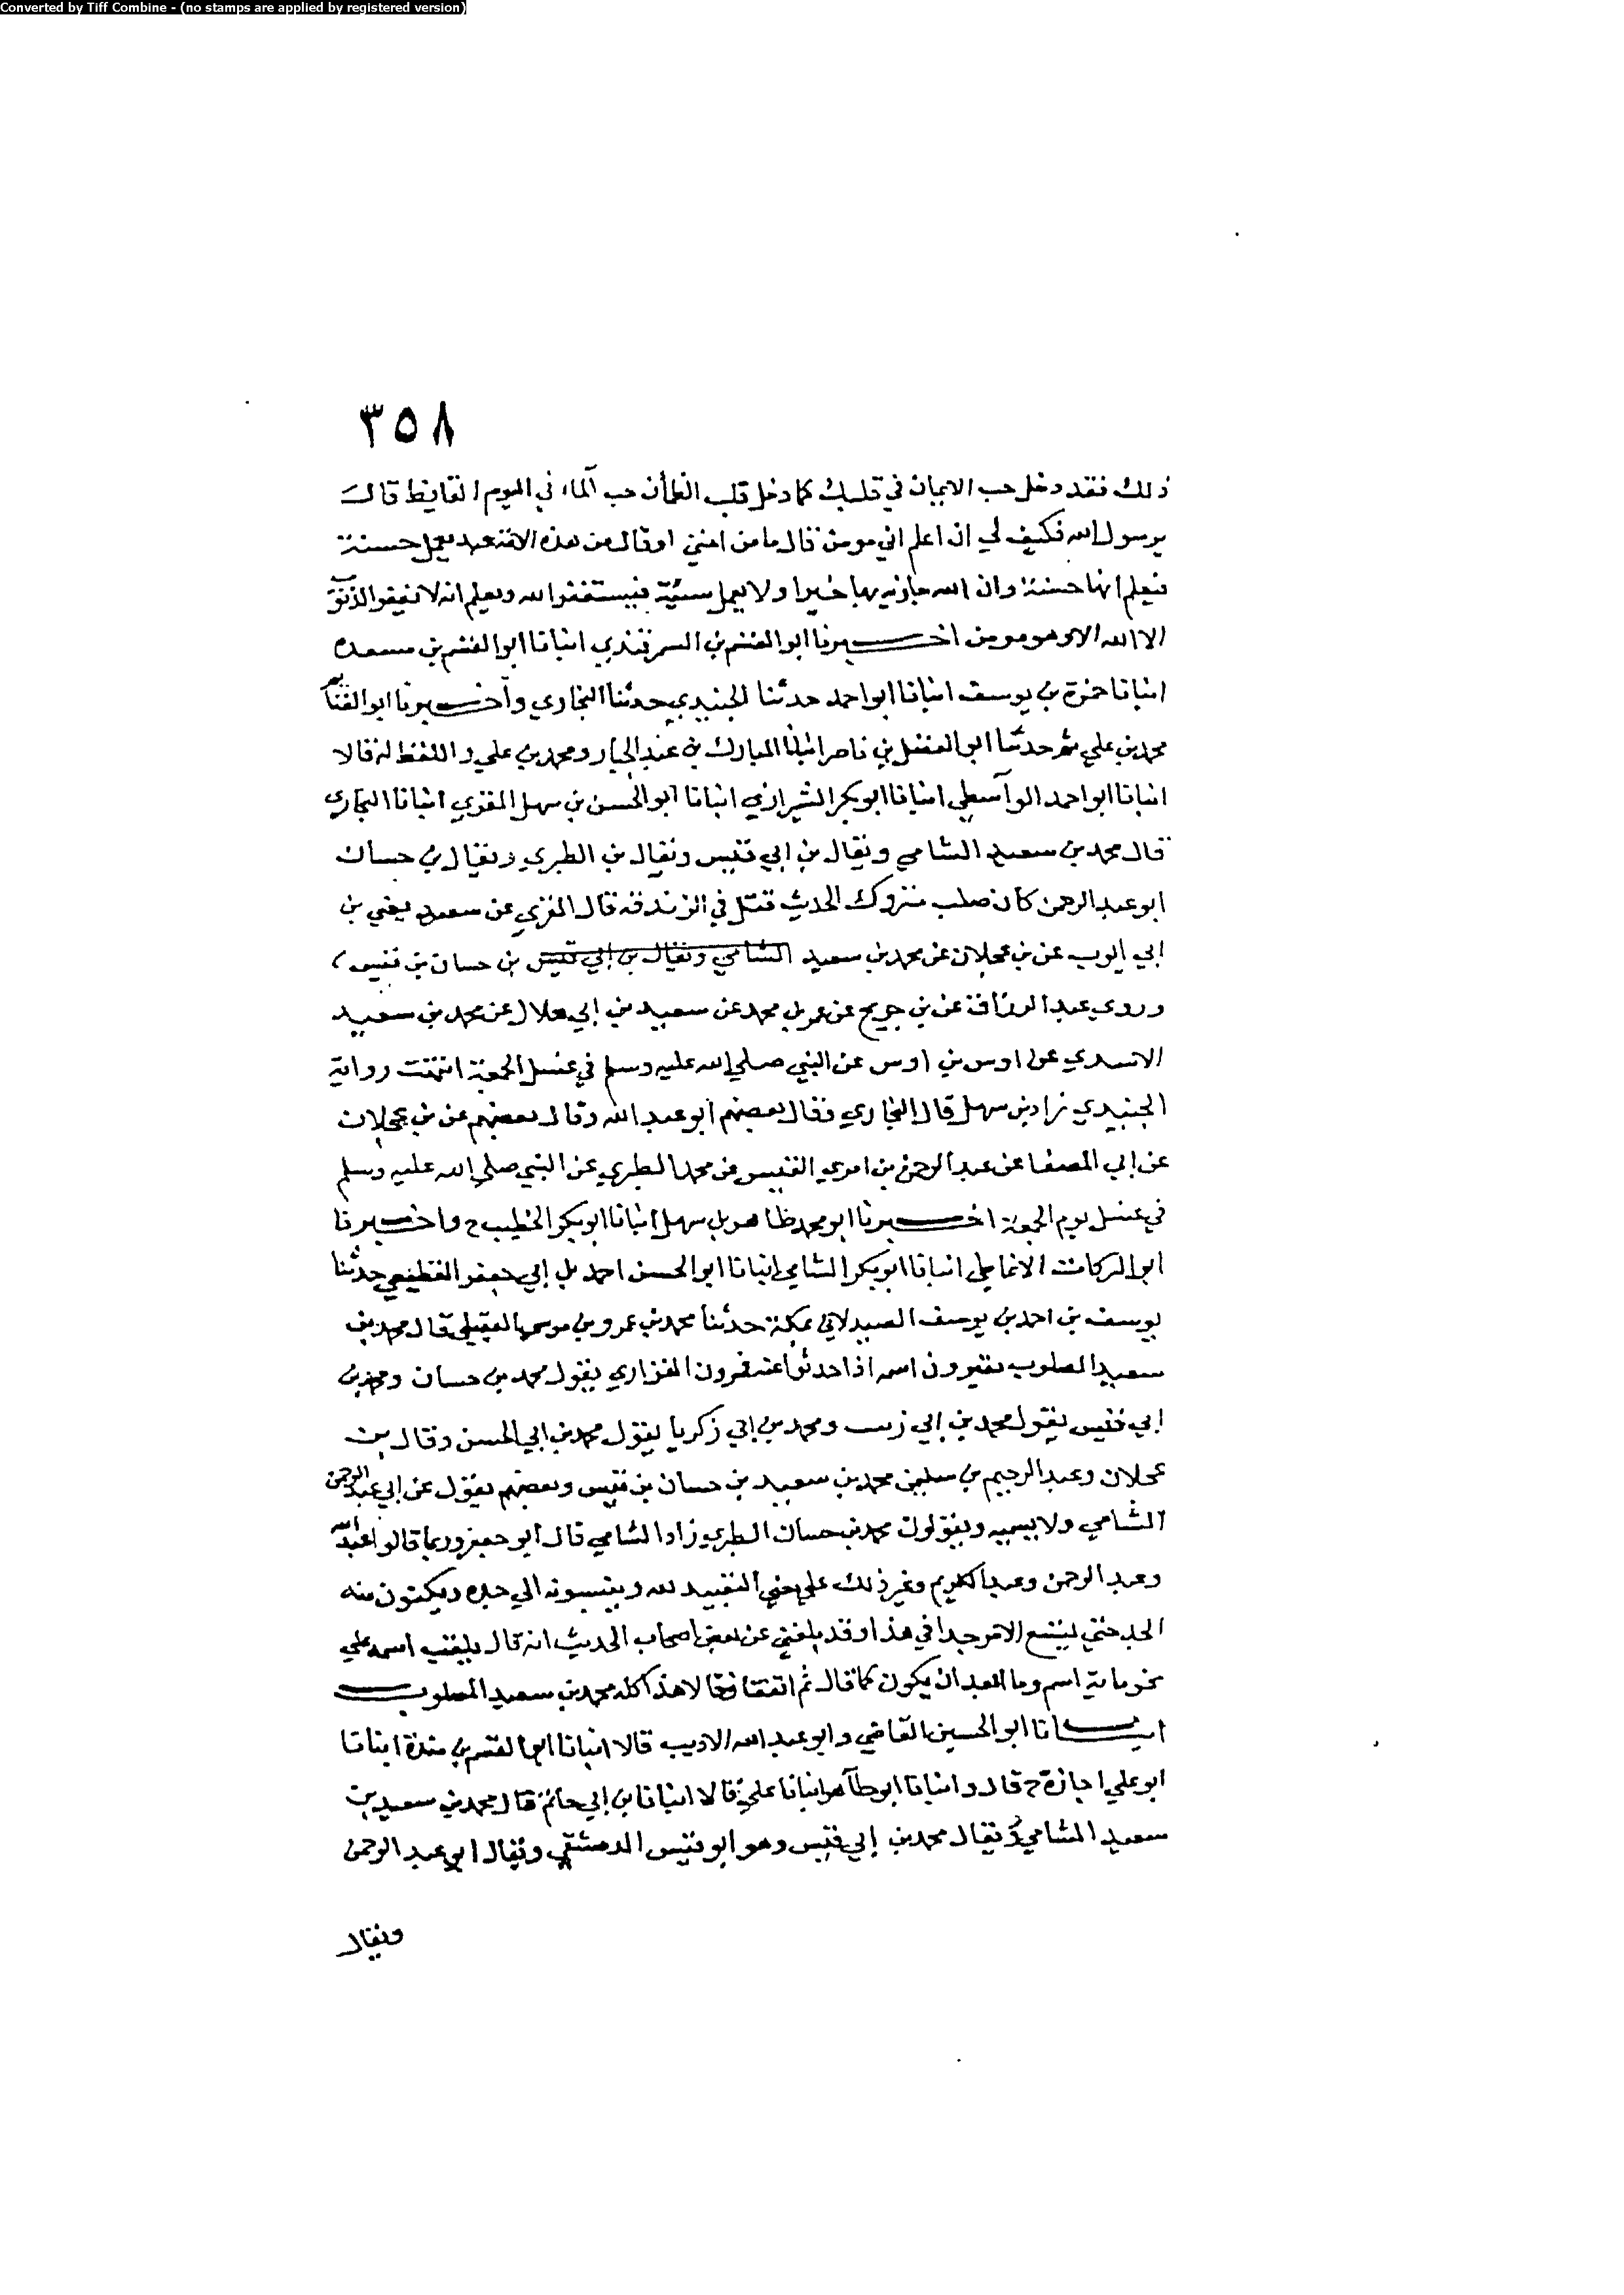 Converted by Tiff Combine - (no stamps are applied by registered version)
٣٥٨
ذلك فقد دخل حب الايمان في قلبك كما دخل قلب الظمأن حب الماء في اليوم القايظ قال
يرسول الله فكيف لي ان اعلم اني مومن قال ما من امتي او قال من هذه الامة عبد يعمل حسنة
فيعلم انها حسنة وان الله جازيه بها خيرا ولا يعمل سيئة فيستغفر الله ويعلم انه لا يغفر الذنوب
الا الله الا وهو مومن اخبرنا ابو القسم بن السمرقندي انبانا ابو القسم بن مسعده
انبانا حمزة بن يوسف انبانا ابو احمد حدثنا الجنيدي حدثنا البخاري واخبرنا ابو الغنايم
محمد بن علي ثم حدثنا ابو الفضل بن ناصر انبانا المبارك بن عبد الجبار ومحمد بن علي واللفظ له قالا
انبانا ابو احمد الواسطي انبانا ابو بكر الشيرازي انبانا ابو الحسن بن سهل المقري انبانا البخاري
قال محمد بن سعيد الشامي ويقال بن ابي قيس ويقال بن الطبري ويقال بن حسان
ابو عبد الرحمن كان صلب متروك الحديث قتل في الزندقة قال المقري عن سعيد يعني بن
ابي ايوب عن بن عجلان عن محمد بن سعيد الشامي ويقال بن ابي قيس بن حسان بن قيس
وروى عبد الرزاق عن بن جريج عن عمر بن محمد عن سعيد بن ابي هلال عن محمد بن سعيد
الاسدي عن اوس بن اوس عن النبي صلى الله عليه وسلم في غسل الجمعة انتهت رواية
الجنيدي زاد بن سهل قال البخاري فقال بعضهم ابو عبد الله وقال بعضهم عن بن عجلان
عن ابي المصفا عن عبد الرحمن بن امري القيس عن محمد الطبري عن النبي صلى الله عليه وسلم
في غسل يوم الجمعة اخبرنا ابو محمد طاهر بن سهل انبانا ابو بكر الخطيب ح واخبرنا
ابو البركات الانماطي انبانا ابو بكر الشامي انبانا ابو الحسن احمد بن ابي جعفر القطيعي حدثنا
يوسف بن احمد بن يوسف الصيدلاني بمكة حدثنا محمد بن عمرو بن موسى العقيلي قال محمد بن
سعيد المصلوب يغيرون اسمه اذا حدثوا عنه فمرون الفزاري يقول محمد بن حسان ومحمد بن
ابي قيس يقول محمد بن ابي زينب ومحمد بن ابي زكريا يقول محمد بن ابي الحسن وقال بن
عجلان وعبد الرحيم بن سليمن محمد بن سعيد بن حسان بن قيس وبعضهم يقول عن ابي عبد الرحمن
الشامي ولا يسميه ويقولون محمد بن حسان الطبري زاد الشامي قال ابو جعفر وربما قالوا عبد الله
وعبد الرحمن وعبد الكريم وغير ذلك على معنى التعبيد لله وينسبونه الى جده ويكنون عنه
الجد حتى يتسع الامر جدا في هذا وقد بلغني عن بعض اصحاب الحديث انه قال يلقب اسمه على
نحو ماية اسم وما ابعد ان يكون كما قال ثم اتفقا فقالا هذا كله محمد بن سعيد المصلوب
انبانا ابو الحسين القاضي وابو عبد الله الاديب قالا انبانا ابو القسم بن مندة انبانا
ابو علي اجازة ح قال وانبانا ابو طاهر انبانا علي قالا انبانا بن ابي حاتم قال محمد بن سعيد بن
سعيد الشامي ويقال محمد بن ابي قيس وهو ابو قيس الدمشقي ويقال ابو عبد الرحمن
ويقال